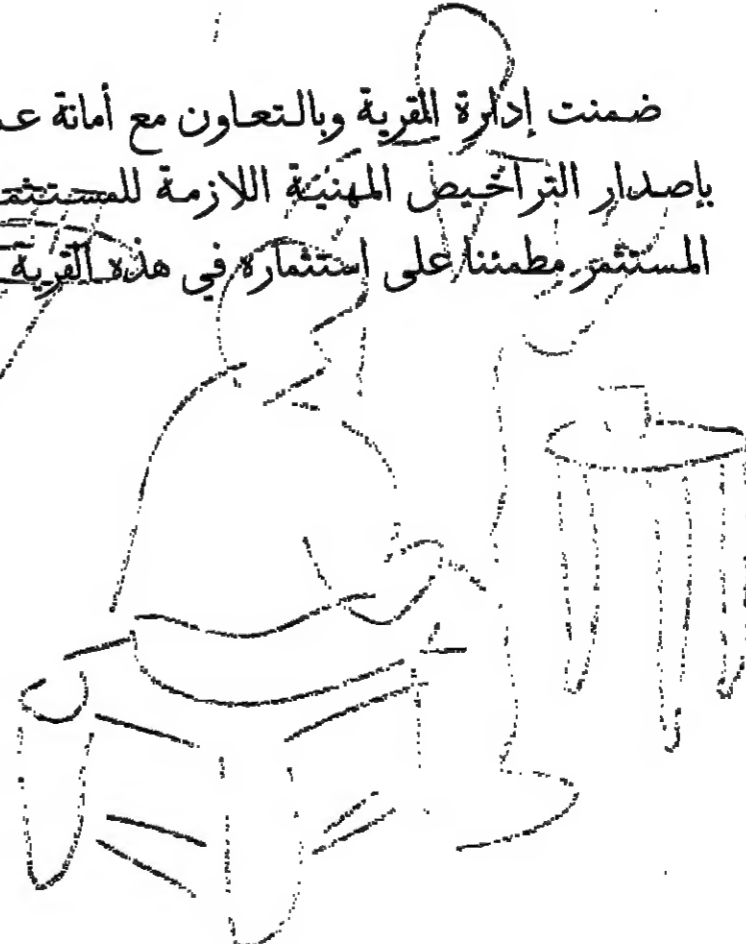 ضمنت إدارة القرية وبالتعاون مع أمانة
بإصدار التراخيص المهنية اللازمة
المستثمر مطمئنا على استثماره في هذه القرية